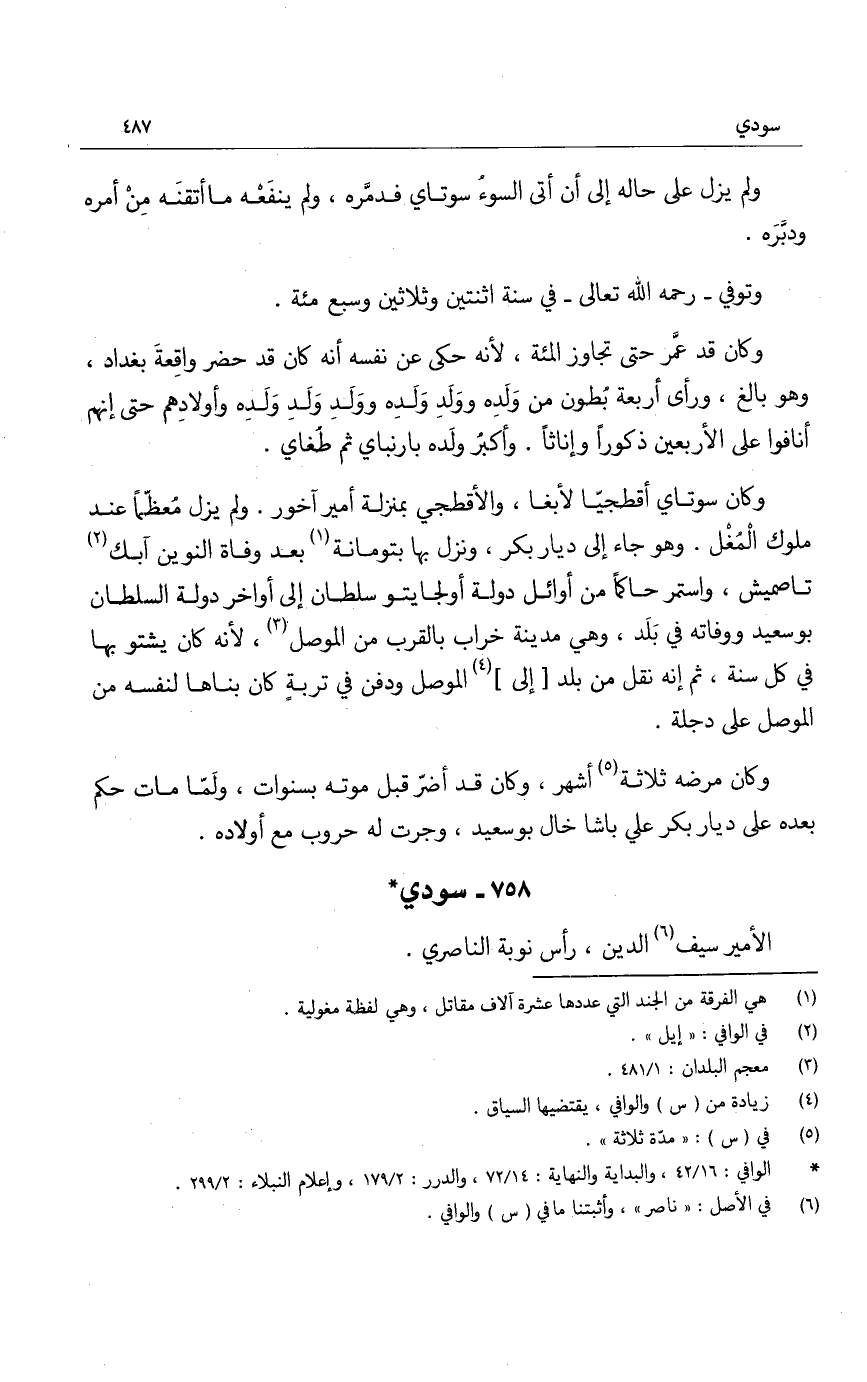 سودي ٤٨٧
ولم يزل على حاله إلى أن أتى السوءُ سوتـاي فـدمَّره ، ولم ينفَعْـه مـاأتقنَـه مِنْ أمره
ودبَّرَه .
وتوفي ـ رحمه الله تعالى ـ في سنة اثنتين وثلاثين وسبع مئة .
وكان قد عمَّر حتى تجاوز المئة ، لأنه حكى عن نفسه أنه كان قد حضر واقعةَ بغداد ،
وهو بالغ ، ورأى أربعة بُطون من وَلَده ووَلَدِ وَلَـده ووَلَـدِ وَلَـدِ وَلَـده وأولادِهم حتى إنهم
أنافوا على الأربعين ذكوراً وإناثاً . وأكبرُ ولَده بارنباي ثم طُغاي .
وكان سوتـاي أقطجيّـا لأبغـا ، والأقطجي بمنزلـة أمير آخور . ولم يزل مُعظّماً عنـد
ملوك الْمُغْل . وهو جاء إلى ديار بكر ، ونزل بها بتومـانـة(١) بعـد وفـاة النوين آبـك(٢)
تـاصميش ، واستمر حـاكماً من أوائـل دولـة أولجـايتـو سلطـان إلى أواخر دولـة السلطـان
بوسعيد ووفاته في بَلَد ، وهي مدينة خراب بالقرب من الموصل(٣) ، لأنه كان يشتو بهـا
في كل سنة ، ثم إنه نقل من بلد [ إلى ](٤) الموصل ودفن في تربـةٍ كان بنـاهـا لنفســه من
الموصل على دجلة .
وكان مرضه ثلاثـة(٥) أشهر ، وكان قـد أضرّ قبل موتـه بسنوات ، ولَمّـا مـات حكم
بعده على ديار بكر علي باشا خال بوسعيد ، وجرت له حروب مع أولاده .
٧٥٨ ـ سودي*
الأمير سيف(٦) الدين ، رأس نوبة الناصري .
(١) هي الفرقة من الجند التي عددها عشرة آلاف مقاتل ، وهي لفظة مغولية .
(٢) في الوافي : « إيل » .
(٣) معجم البلدان : ٤٨١/١ .
(٤) زيادة من ( س ) والوافي ، يقتضيها السياق .
(٥) في ( س ) : « مدّة ثلاثة » .
* الوافي : ٤٢/١٦ ، والبداية والنهاية : ٧٢/١٤ ، والدرر : ١٧٩/٢ ، وإعلام النبلاء : ٢٩٩/٢ .
(٦) في الأصل : « ناصر » ، وأثبتنا ما في ( س ) والوافي .